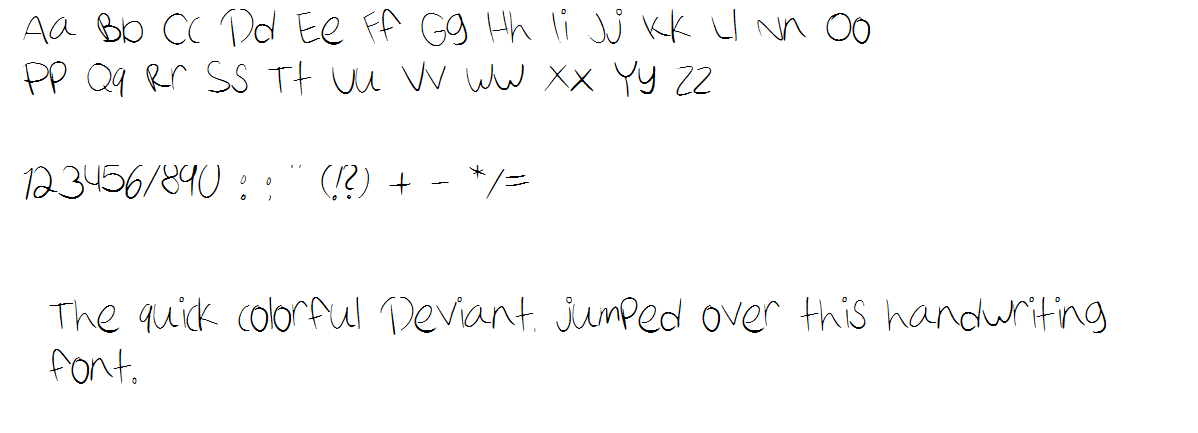 Aa Bb Cc Dd Ee Ff Gg Hh Ii Jj Kk Ll Nn Oo
Pp Qq Rr Ss Tt Uu Vv Ww Xx Yy Zz
123456/890 : ; " (!?) + - */=
The quick colorful Deviant. jumped over this handwriting
font.